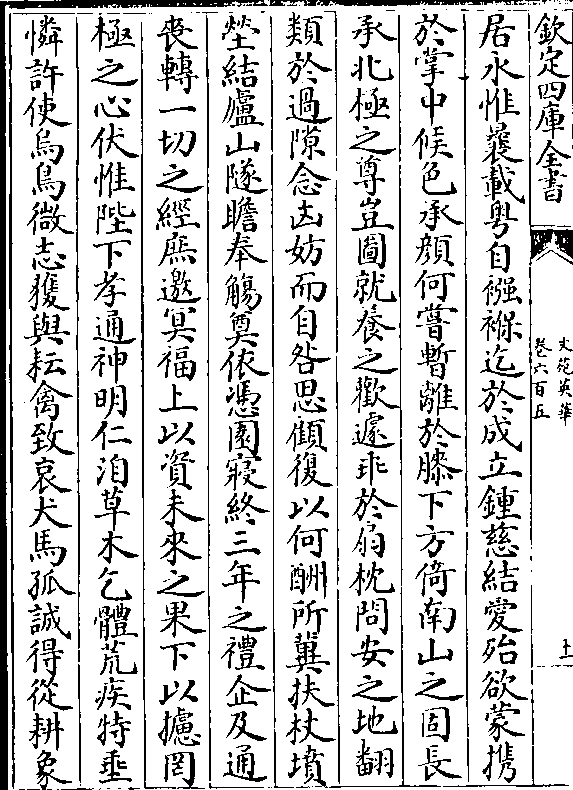 欽定四庫全書
文苑英華
卷六百五
十一
居永惟曩載粤自襁褓迄於成立鍾慈結愛殆欲蒙携
於掌中候色承顔何嘗暫離於膝下方倚南山之固長
承北極之尊豈圖就養之歡遽乖於扇枕問安之地翻
類於過隙念出妨而自咎思顧復以何酬所冀扶杖墳
塋結廬山隧瞻奉觴奠依憑園寢終三年之禮企及通
喪轉一切之經庶邀冥福上以資未來之果下以攄罔
極之心伏惟陛下孝通神明仁洎草木乞體荒疾特垂
憐許使烏鳥微志獲與耘禽致哀犬馬孤誠得從耕象